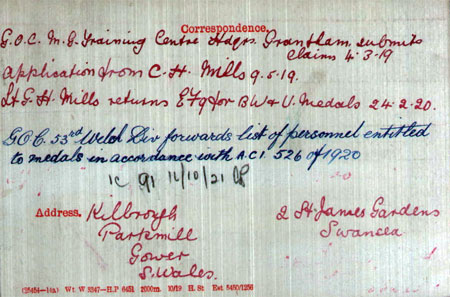 Correspondence.
G.O.C. M.G. Training Centre Hdqrs. Grantham submits
claims 4.3.19
Application from C. H. Mills 9.5.19.
Lt G. H. Mills returns E F9 for BW & V. Medals 24.2.20.
G.O.C. 53rd Weld Div forwards list of personnel entitled
to medals in accordance with A.C.I. 526 of 1920
1c 91 12/10/21
Address.
Kilbrough
Parkmill
Gower
S. Wales.
2 St James Gardens
Swansea
Wt W 3347—H.P 2000m. 10/19 H. St